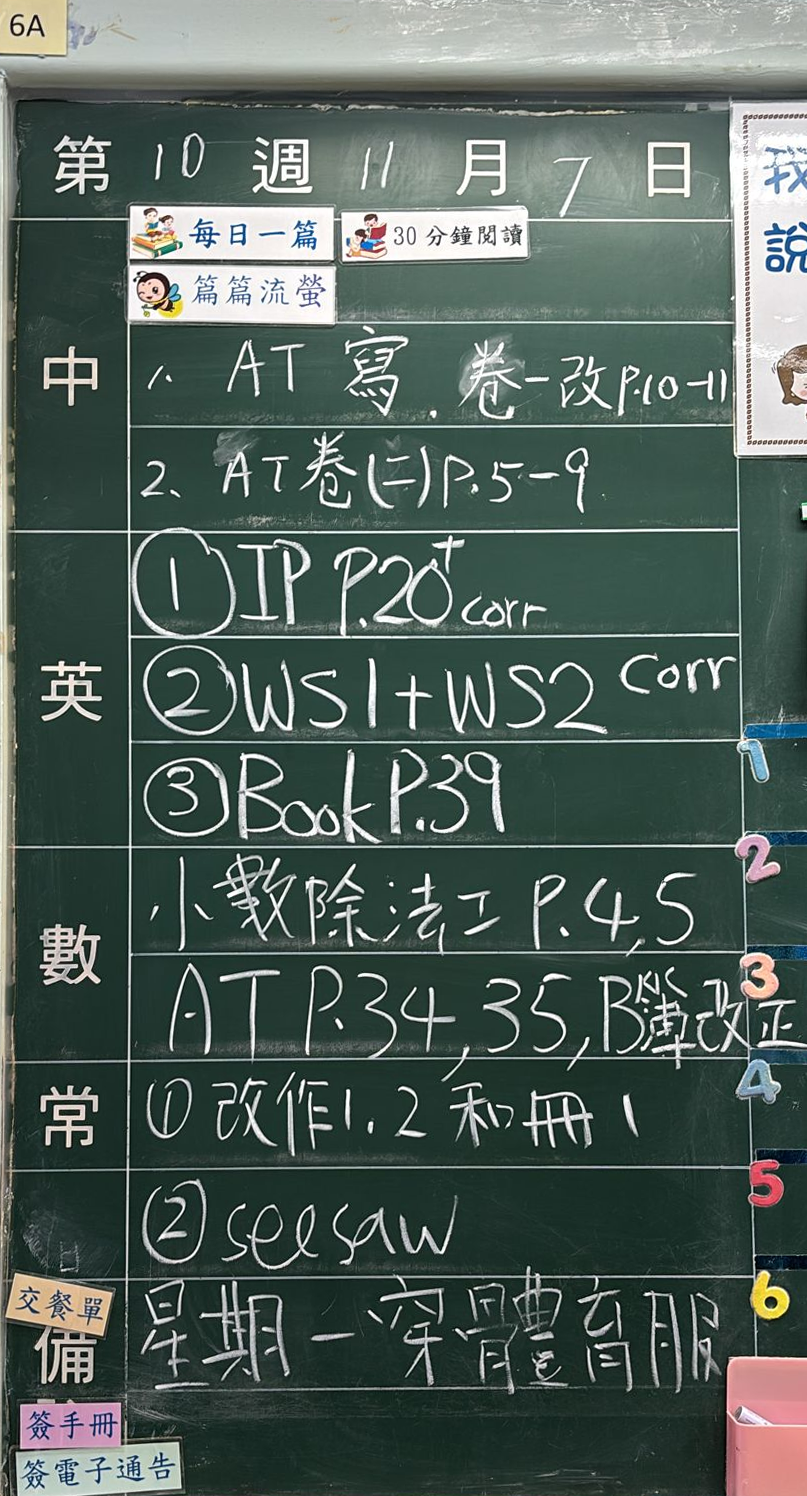 6A
第 10 週 11 月 7 日
每日一篇 30分鐘閱讀
篇篇流螢
中
1. AT 寫. 卷一改 P.10-11
2. AT卷(二)P.5-9
英
① IP P.20+ corr
② WS1+WS2 corr
③ Book P.39
數
小數除法工 P.4,5
AT P.34,35,B簿改正
常
① 改作1.2 和冊1
② seesaw
備
星期一穿體育服
交餐單
簽手冊
簽電子通告
我
説
1
2
3
4
5
6